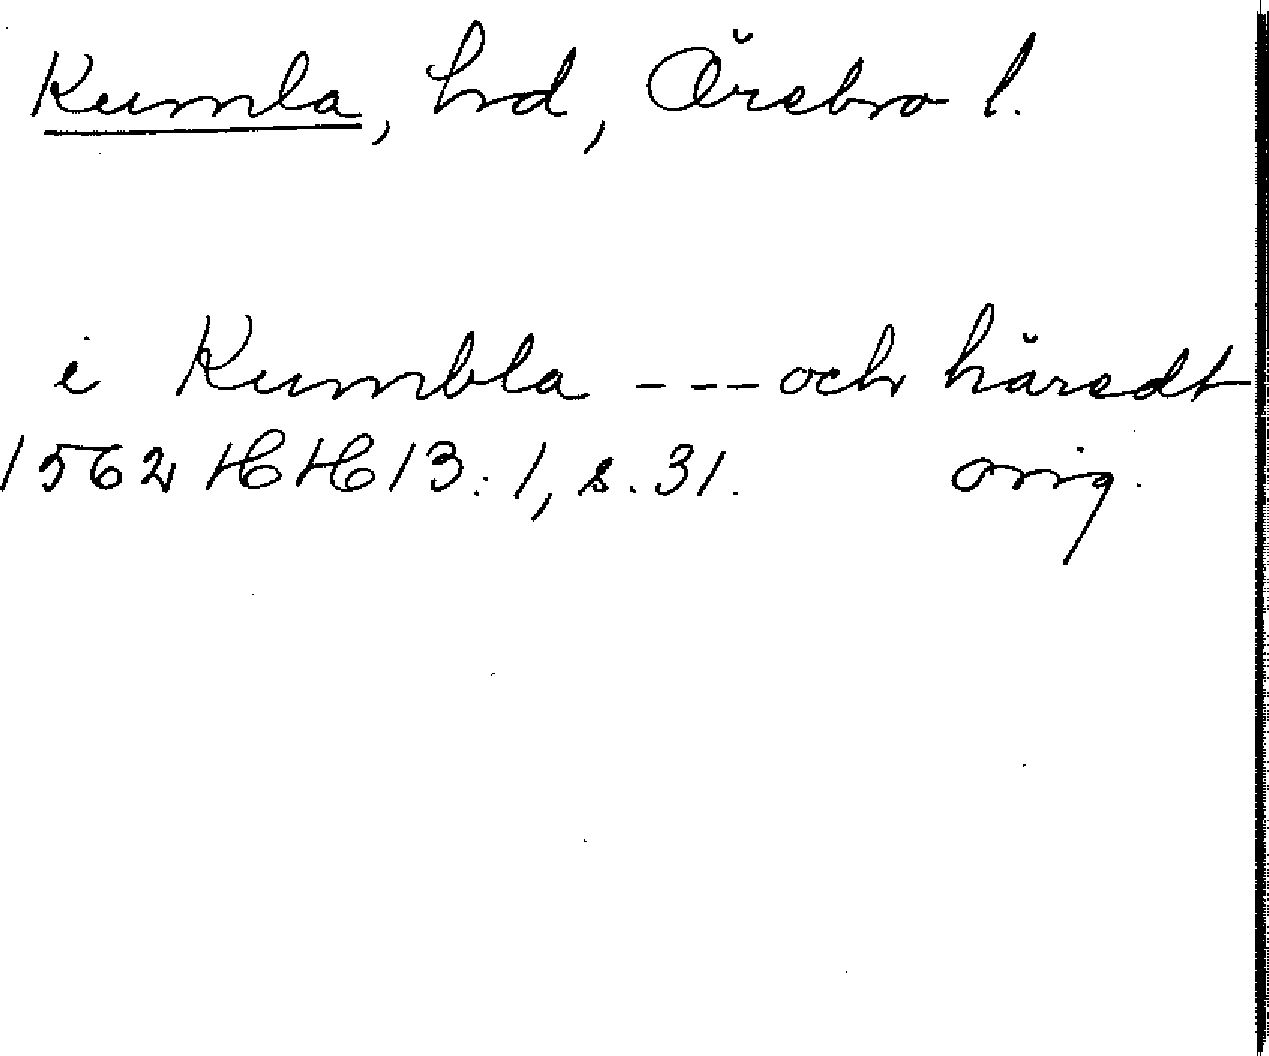 Kumla, hrd, Örebro l.
i Kumbla --- och häredt
1562 HH 13:1, s. 31. orig.